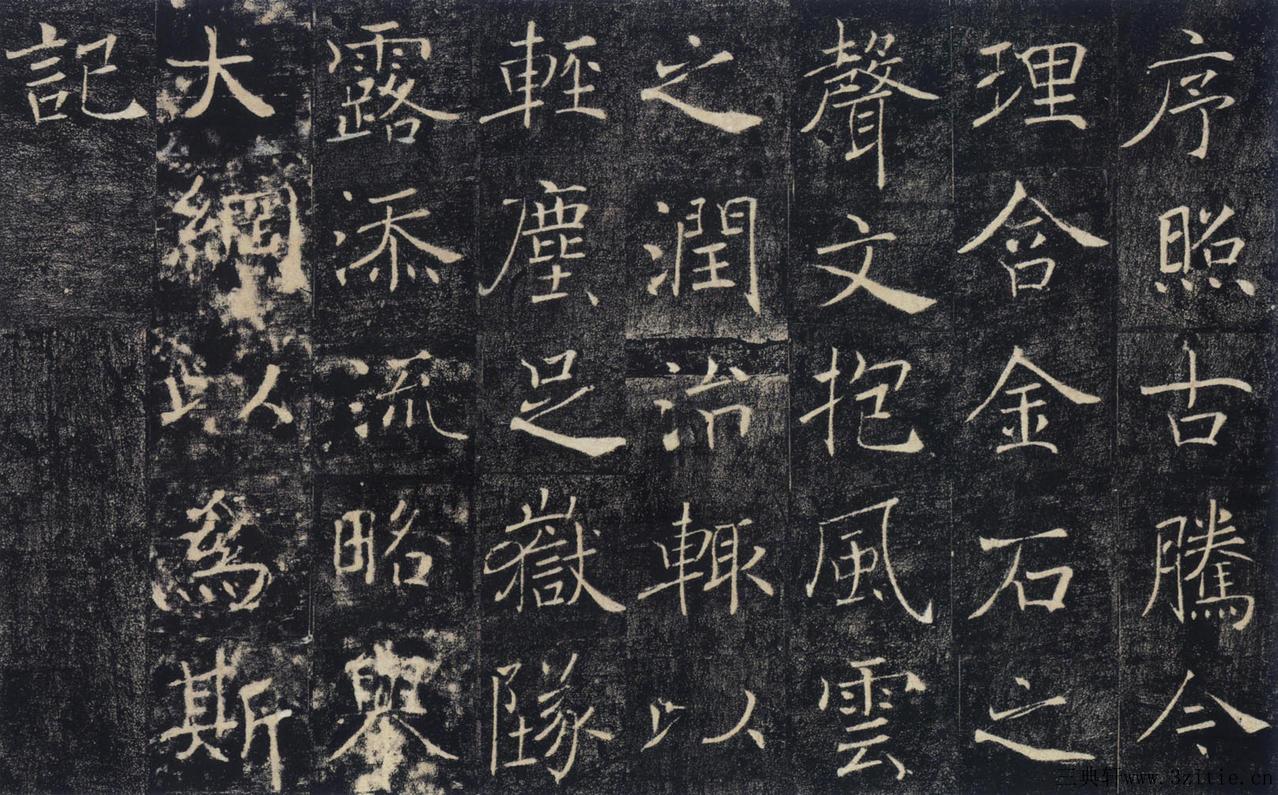 序照古騰今
理含金石之
聲文抱風雲
之潤治輒以
輕塵足嶽墜
露添流略舉
大綱以為斯
記
三典轩www.3zitie.cn